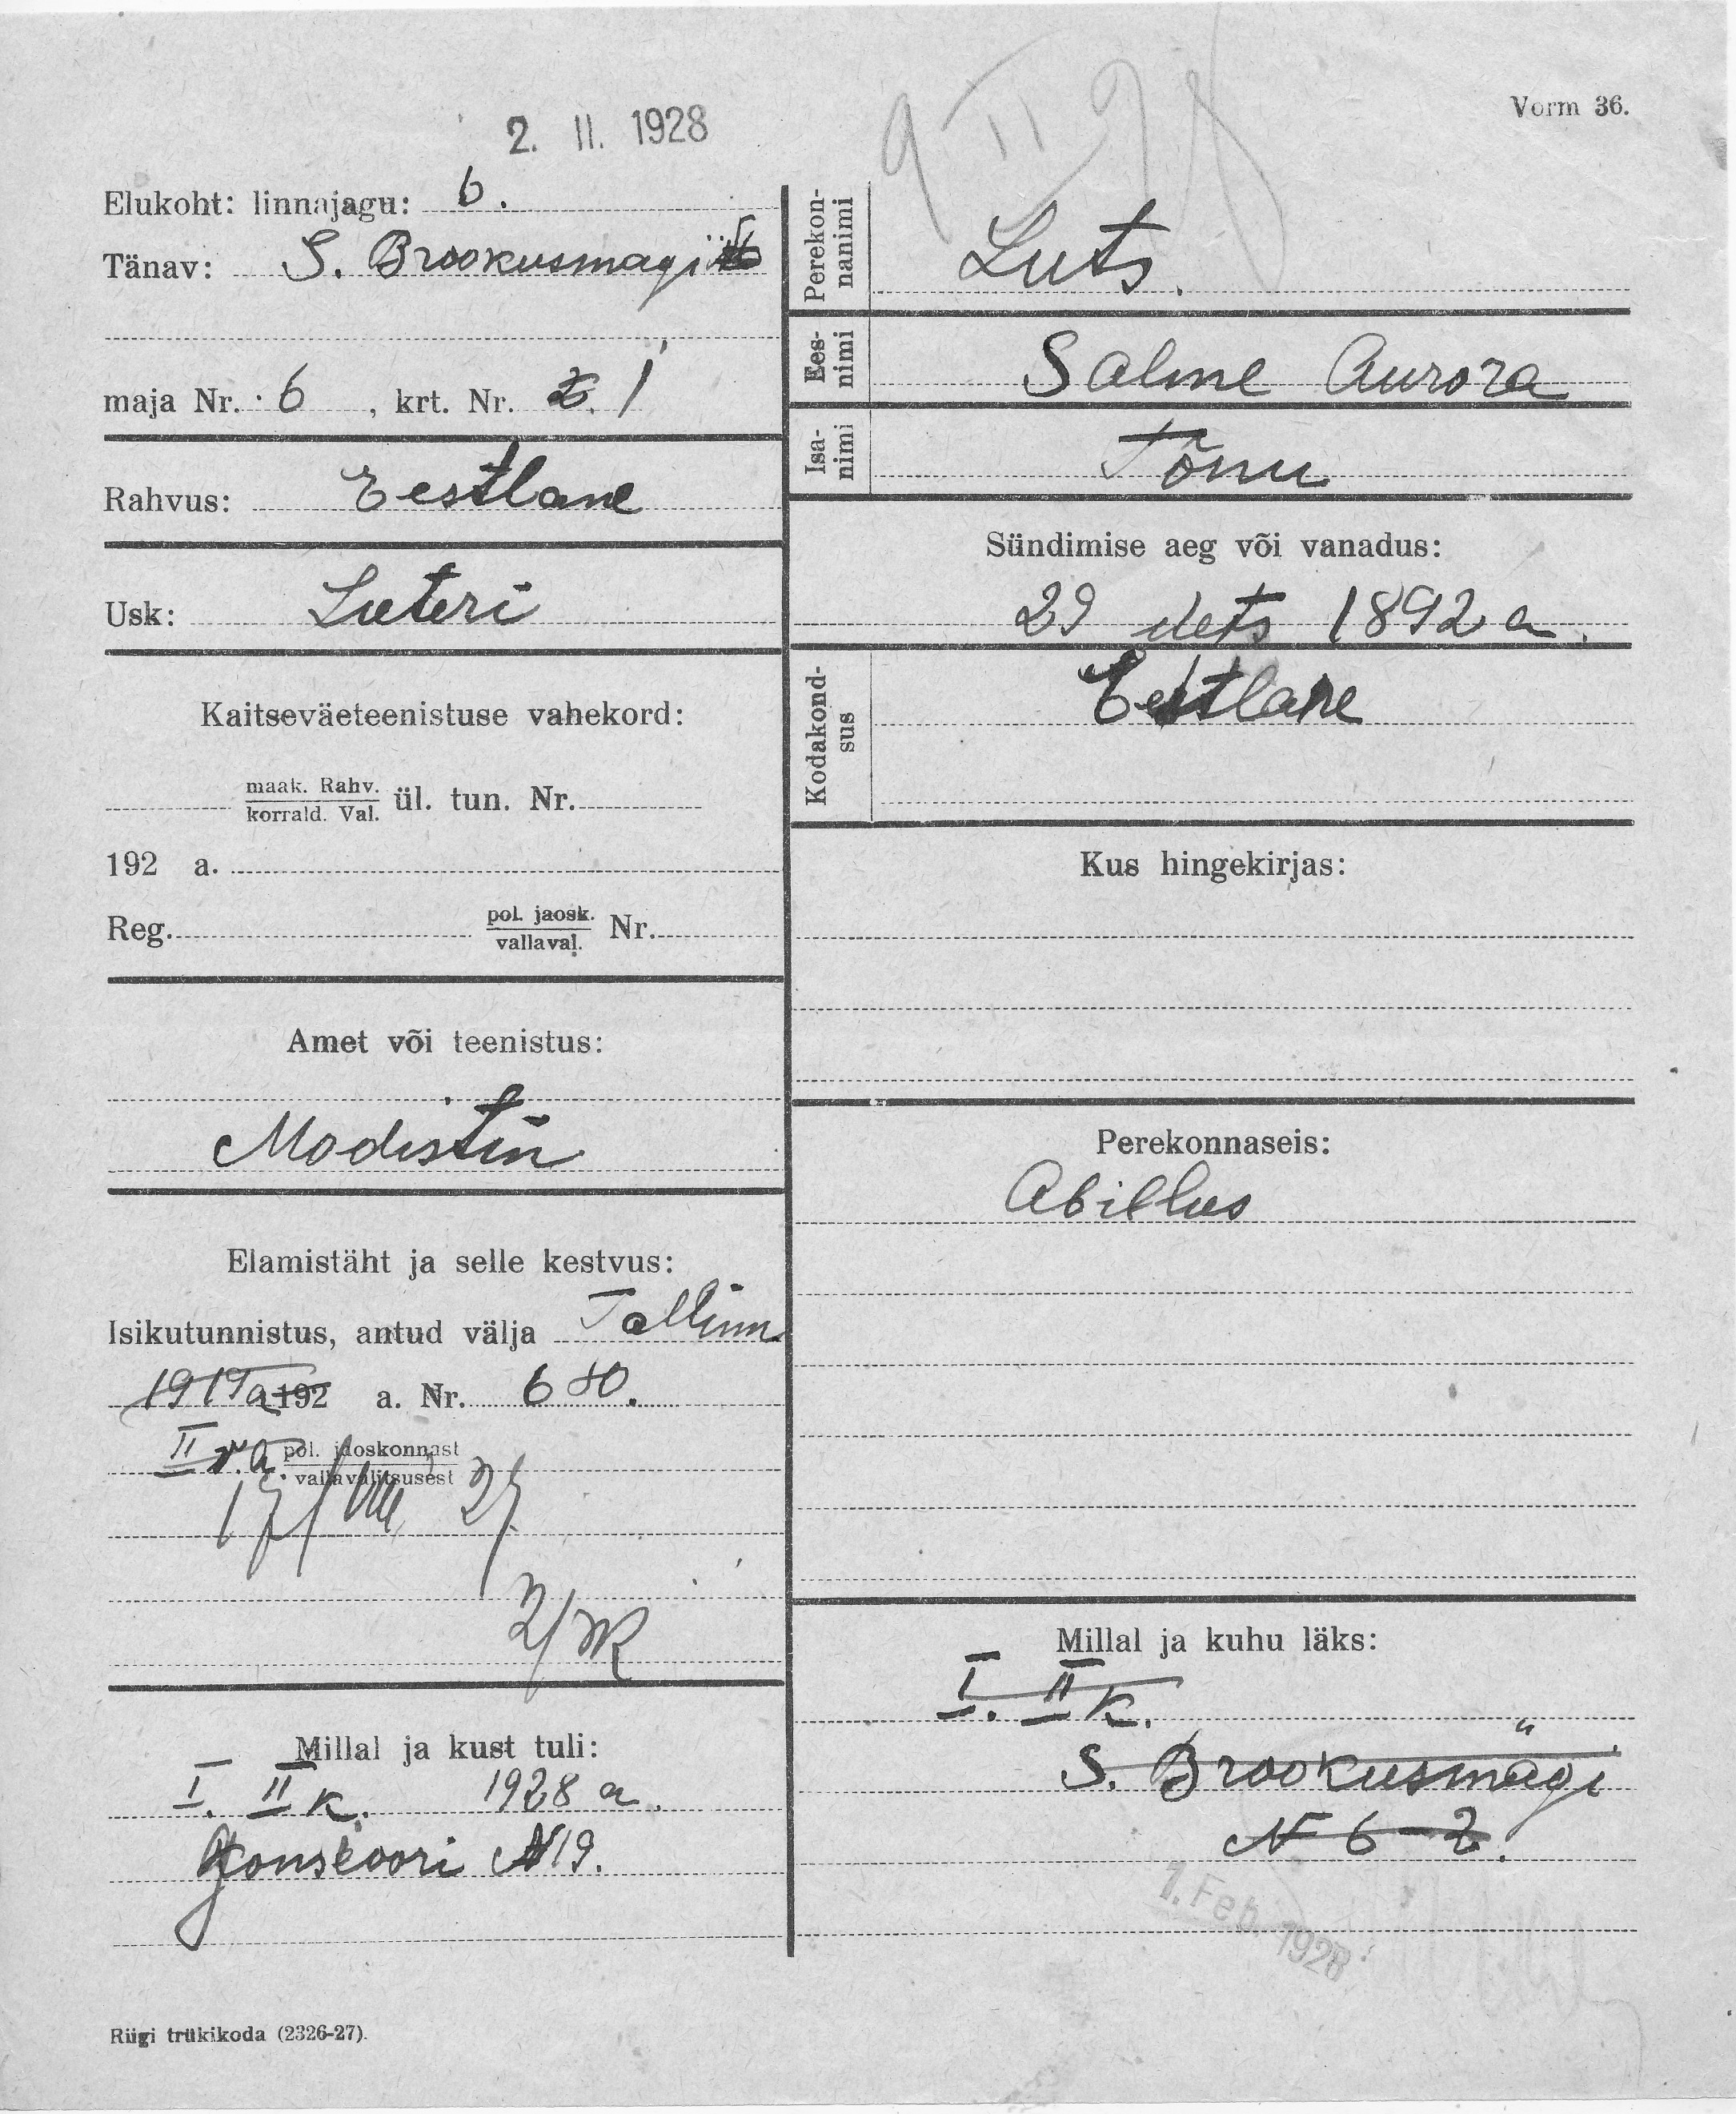 Vorm 36.
2. II. 1928
9 II 28
Elukoht: linnajagu: 6.
Tänav: S. Brookusmagi
maja Nr. 6, krt. Nr. 2. 1
Rahvus: Eestlane
Usk: Luteri
Kaitseväeteenistuse vahekord:
maak. Rahv.
korrald. Val. ül. tun. Nr.
192 a.
Reg. pol. jaosk. Nr.
vallaval.
Amet või teenistus:
Modistin
Elamistäht ja selle kestvus:
Isikutunnistus, antud välja Tallinn
1919 a 192 a. Nr. 680.
II r.a. pol. jaoskonnast
vallavalitsusest
17/VIII 27
Millal ja kust tuli:
I. II k. 1928 a.
Gonsioori N19.
Riigi trükikoda (2326-27).
Perekon-
nanimi Luts.
Ees-
nimi Salme Aurora
Isa-
nimi Tõnu
Sündimise aeg või vanadus:
29 dets 1892 a.
Kodakond-
sus Eestlane
Kus hingekirjas:
Perekonnaseis:
Abillus
Millal ja kuhu läks:
I. II k.
S. Brookusmägi
N 6-2.
1. Feb. 1928